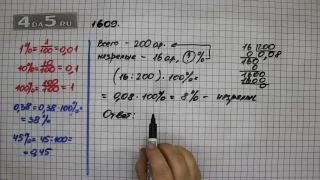 4DA5.RU
1609.
1% = 1/100 = 0,01
10% = 10/100 = 0,1
100% = 100/100 = 1
0,38 = 0,38·100% = 38%
45% = 45:100 = 0,45
Всего - 200 ар.
незрелые - 16 ар., ?%
(16 : 200) · 100% =
= 0,08 · 100% = 8% - незрелые
Ответ:
16 200
0 0,08
160
0
1600
1600
0